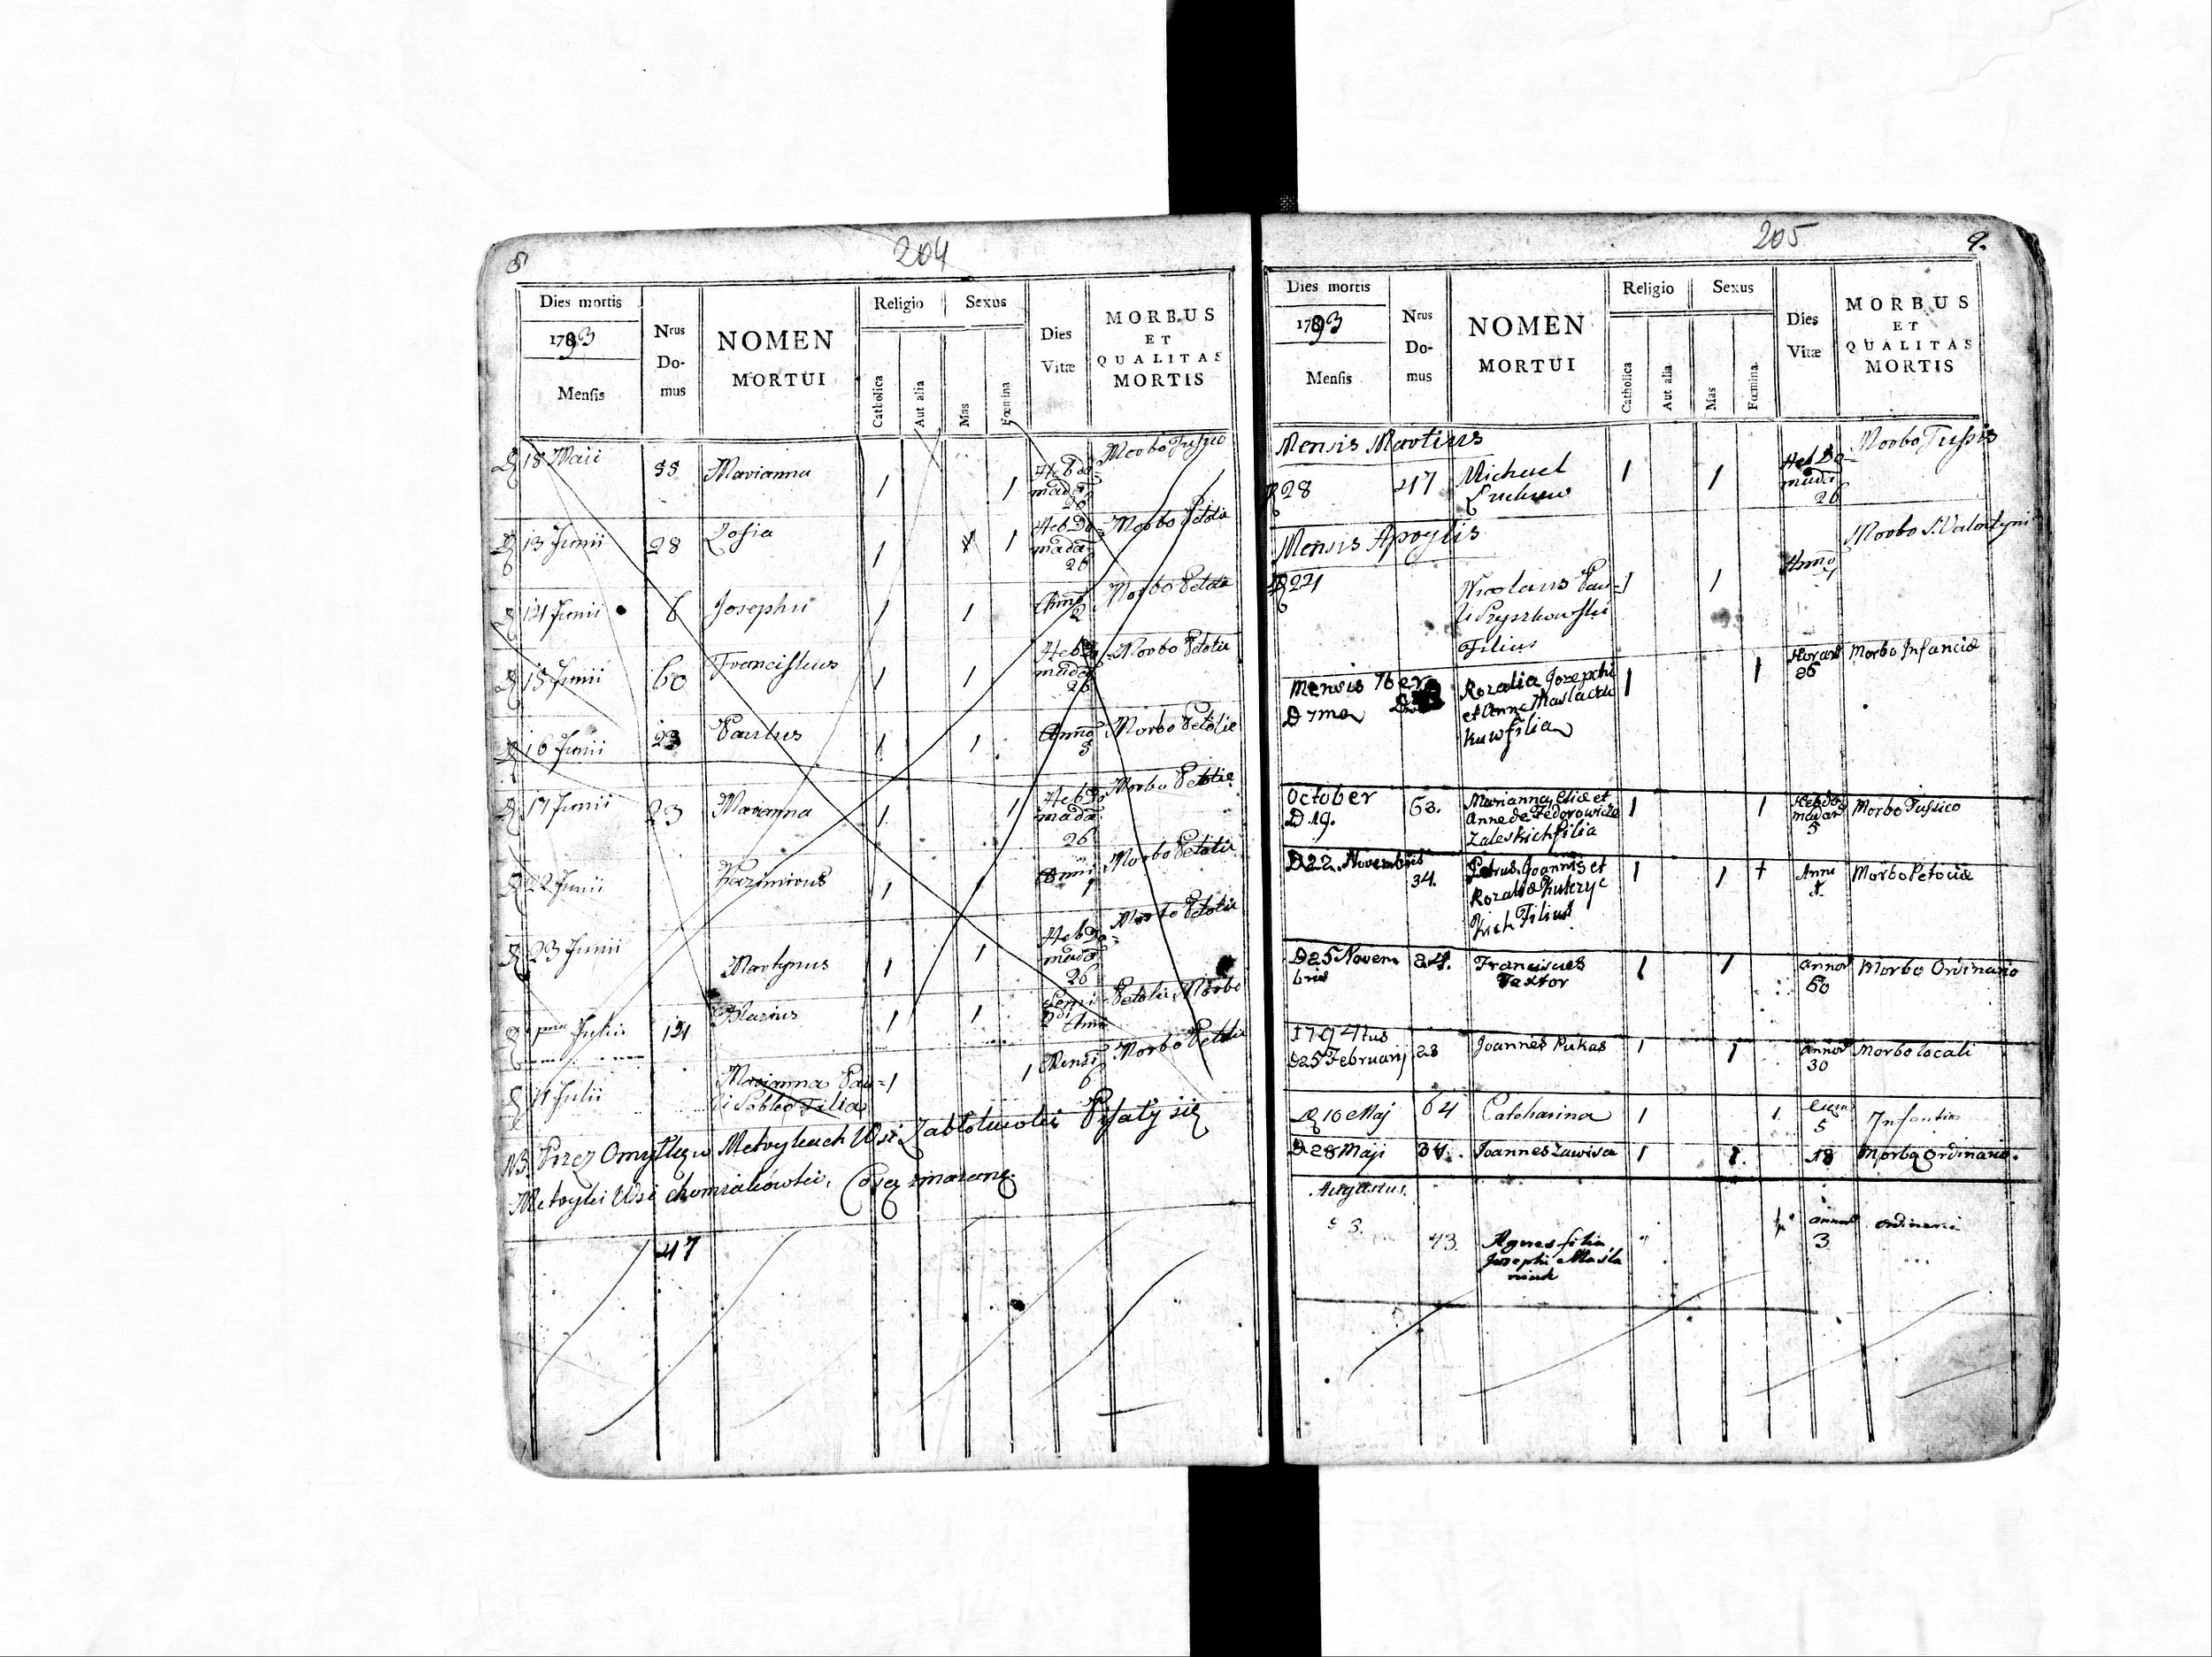 8
204
Dies mortis
1793
Mensis
Nrus
Do-
mus
NOMEN
MORTUI
Religio
Catholica
Aut alia
Sexus
Mas
Fœmina
Dies
Vitæ
MORBUS
ET
QUALITAS
MORTIS
D 18 Maii 55 Marianna 1 1 Hebdo-
mada
26 Morbo Tussico
D 13 Junii 28 Zofia 1 1 Hebdo
mada
26 Morbo Petotia
D 14 Junii 6 Josephus 1 1 Anno
2 Morbo Petotia
D 15 Junii 60 Franciskus 1 1 Hebdo
mada
26 Morbo Petotia
D 16 Junii 23 Paulus 1 1 Anno
5 Morbo Petotia
D 17 Junii 23 Marianna 1 1 Hebdo
mada
26 Morbo Petotia
D 22 Junii Kazimirus 1 1 Anni
1 Morbo Petotia
D 23 Junii Martynus 1 1 Hebdo-
mada
26 Morbo Petotia
D 1ma Julii 14 Blazius 1 1 Petotia Morbo
D 11 Julii Marianna Pau-
li Filia 1 1 Mensi
6 Morbo Petotia
NB. Przez Omyłkę w Metrykach Wsi Zabłotuwki Pisały się
Metryki Wsi chomiakówki, Co są zmazane.
47
205
9.
Dies mortis
1793
Mensis
Nrus
Do-
mus
NOMEN
MORTUI
Religio
Catholica
Aut alia
Sexus
Mas
Fœmina.
Dies
Vitæ
MORBUS
ET
QUALITAS
MORTIS
Mensis Martius
D 28 47 Michael 1 1 Hebdo-
mada
26 Morbo Tussis
Mensis Aprylis
D 24 Nicolaus Pau-
li Pryszkowski
Filius 1 1 Anno Morbo S. Valentyni
Mensis 7ber
D 7ma Rozalia Jozephi
et Anne Maslaczu
kuw filia 1 1 Horar
26 Morbo Infancia
October
D 19. 63. Marianna, Eliæ et
Anne de Fedorowicze
Zaleskich filia 1 1 Hebdo
madar
5 Morbo Tussico
D 22. Novembris 34. Petrus Joannis et
Rozaliæ
Filius 1 1 + Anni Morbo Petociæ
D 25 Novem
bris 24. Franciscus
Textor 1 1 annor
60 Morbo Ordinario
1794tus
D 25 Februarij 28 Joannes Pukas 1 1 annor
30 Morbo locali
D 10 Maj 64 Catharina 1 1. 5 Infantia
D 28 Maji 34. Joannes Zawisa 1 1. 18 Morbo ordinario.
Augustus.
3. 43. Agnes filia
Josephi Masla
niuk annor
3 ordinaria